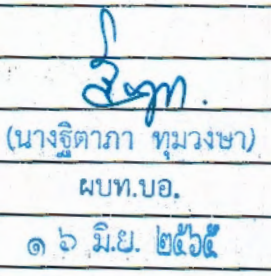 (นางฐิตาภา ทุมวงษา)
ผบท.บอ.
๑๖ มิ.ย. ๒๕๖๕